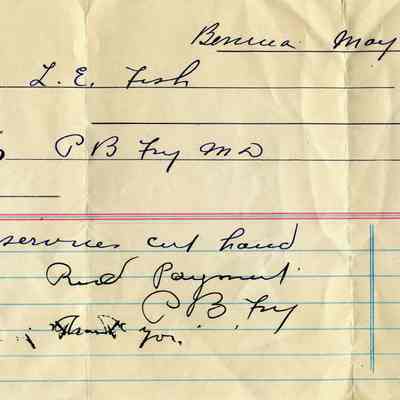 Benicia May
L. E. Fish
P B Fry M D
services cut hand
Recd Payment
P B Fry
Thank you.